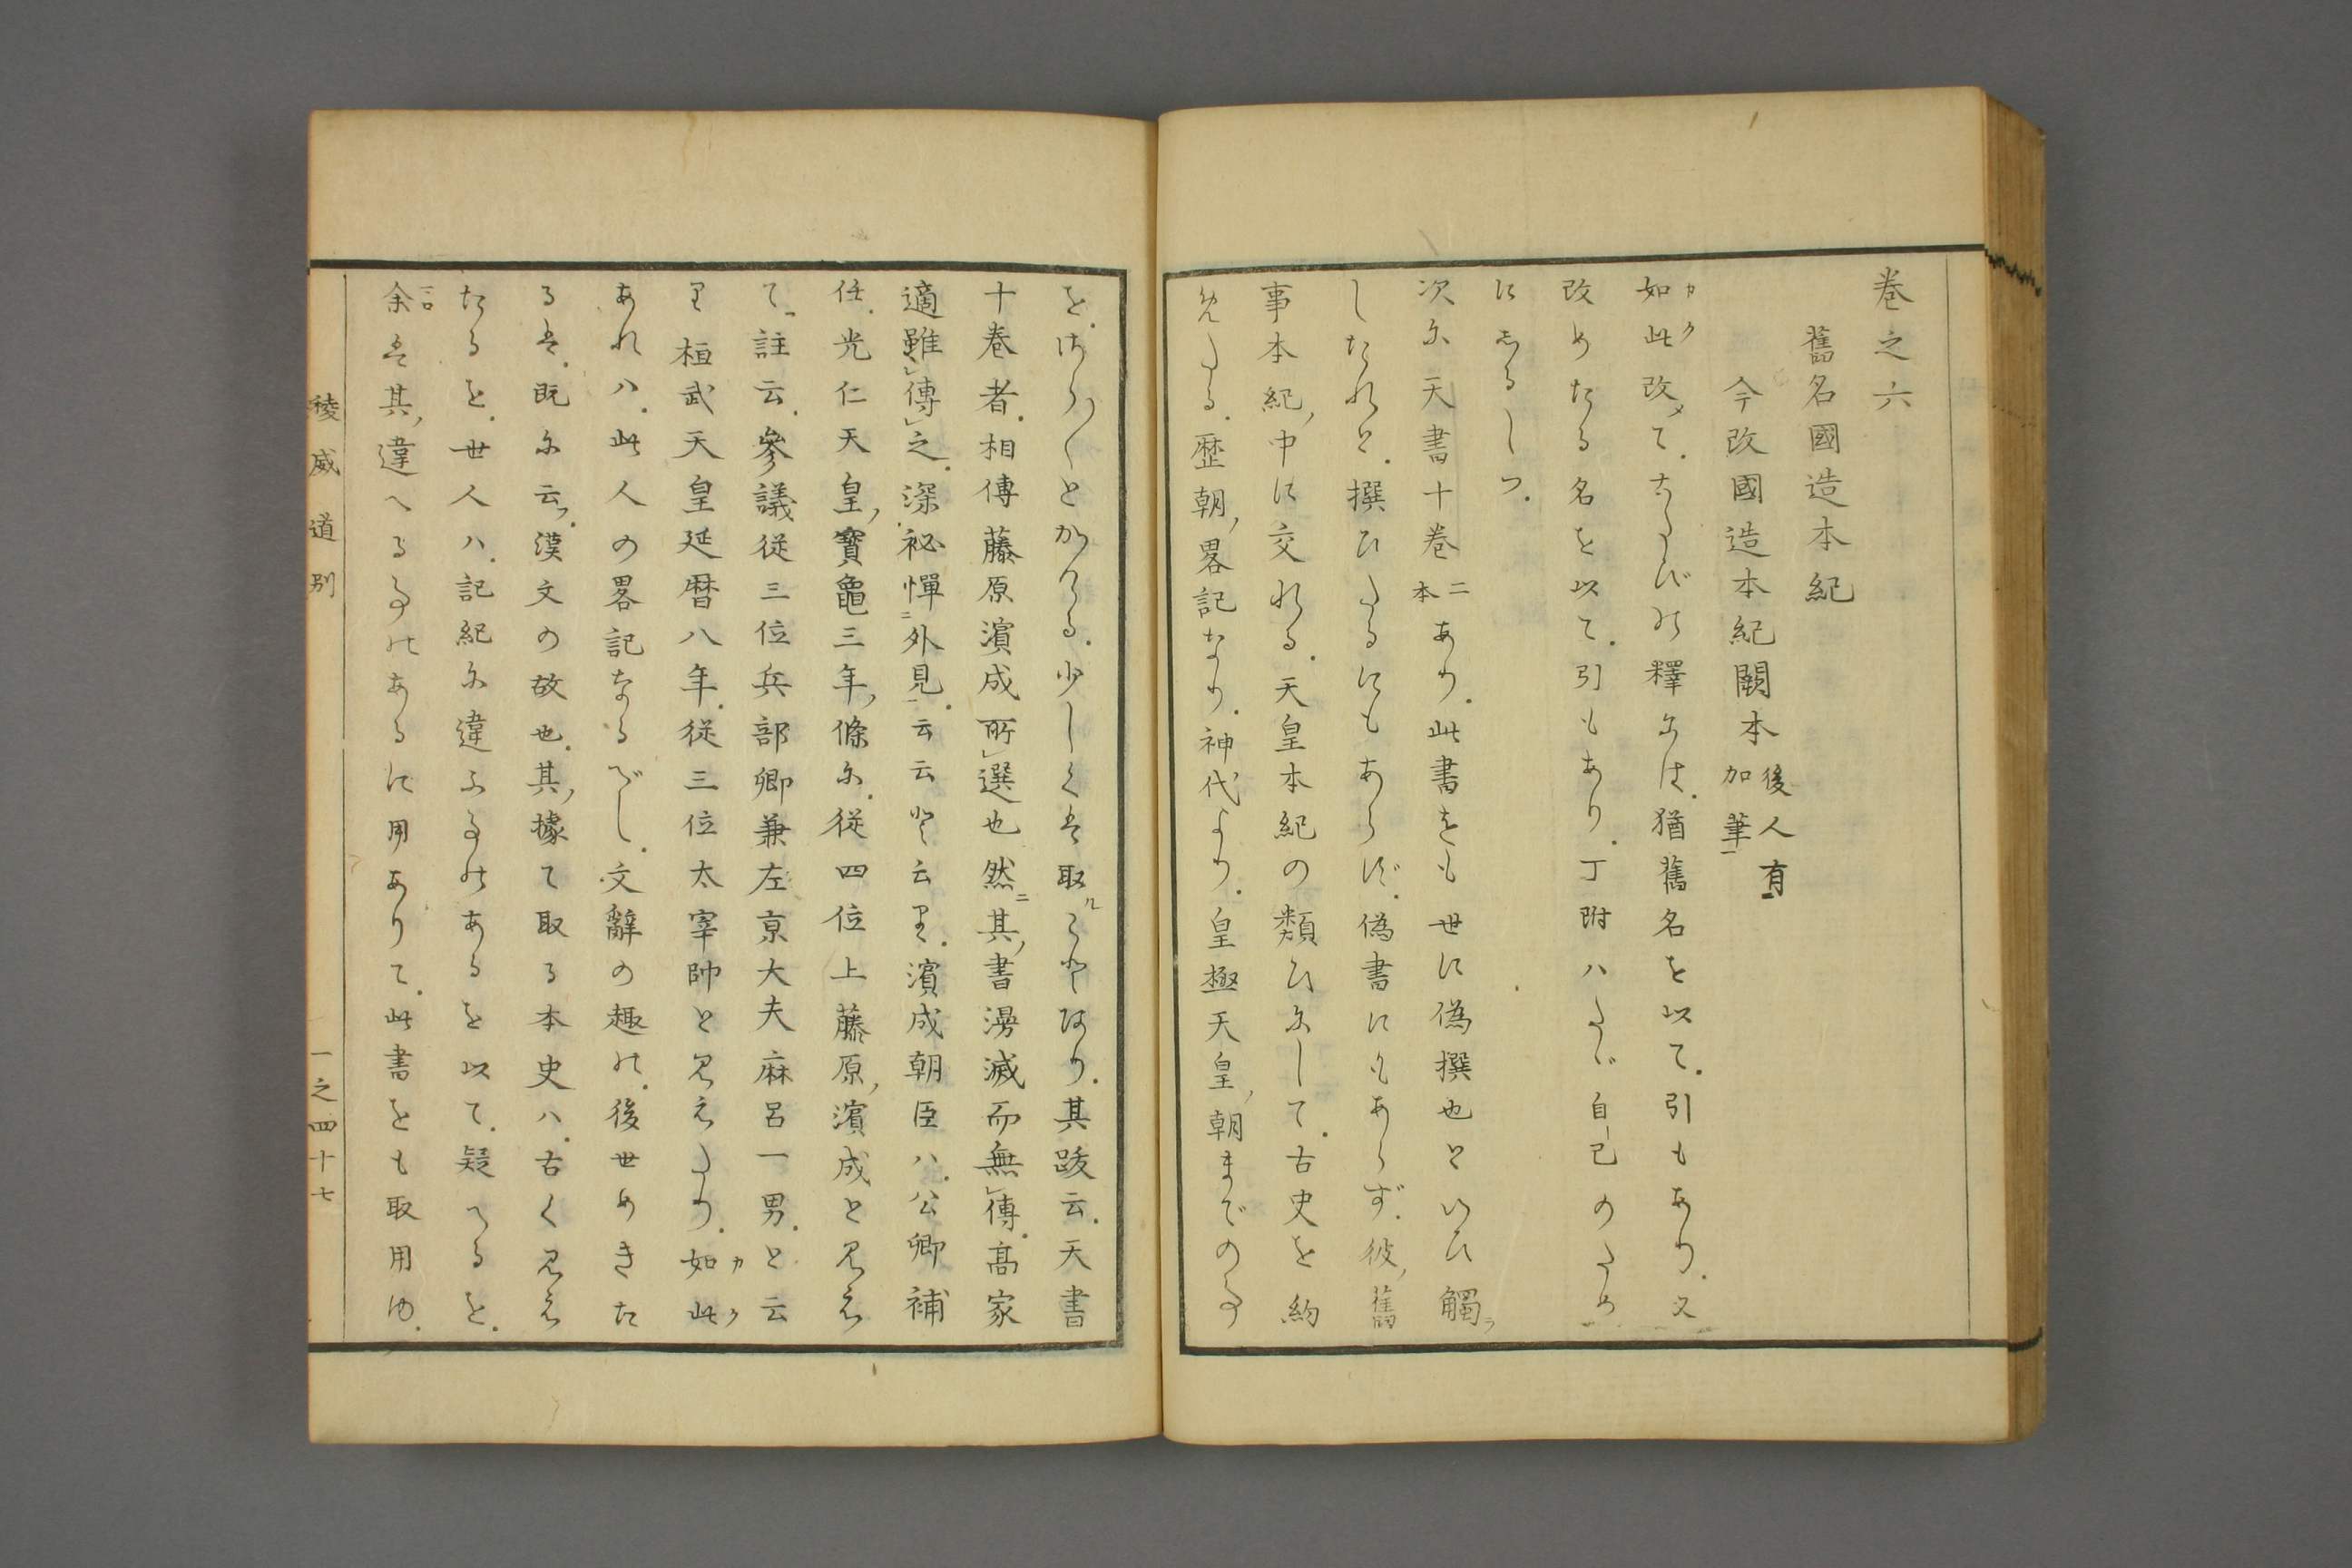 巻之六
舊名國造本紀
今改國造本紀闕本後人有加筆
如此改メて、こたびの釋には、猶舊名を以て、引もあり、又
改めたる名を以て、引もあり、丁附ハたゞ自己のため
にしるしつ、
次に天書十巻二本あり、此書をも世に偽撰也といひ觸ラ
したれと、撰ひたるにもあらず、偽書にもあらず、彼ノ舊
事本紀ノ中に交れる、天皇本紀の類ひにして、古史を約
めたる、歴朝ノ畧記なり、神代より、皇極天皇ノ朝までの事
を、
とかける、少しくは取ル
なり、其跋云、天書
十巻者、相傳藤原濱成所レ選也然ニ其ノ書漫滅而無レ傳、髙家
適雖レ傳レ之、深祕憚ニ外見一、云云と云り、濱成朝臣ハ、公卿補
任、光仁天皇ノ寳龜三年ノ條に、從四位上藤原ノ濱成と見え
て、註云、參議從三位兵部卿兼左京大夫麻呂一男、と云
り桓武天皇延暦八年、從三位太宰帥と見えたり、如此カク
あれハ、此人の畧記なるべし、文辭の趣の、後世めきた
るは、既に云フ、漢文の故也、其ノ據て取る本史ハ、古く見え
たるを、世人ハ、記紀に違ふ事のあるを以て、疑へるを、
余は其ノ違へる事のあるに用ありて、此書をも取用ゆ、
稜威道別
一之四十七